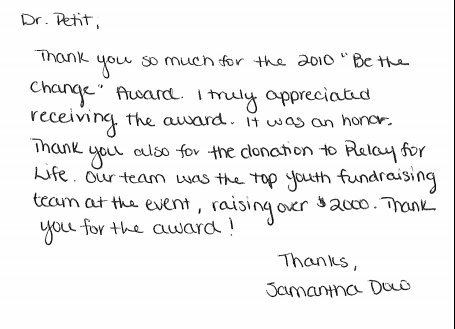 Dr. Petit,
Thank you so much for the 2010 "Be the
Change" Award. I truly appreciated
receiving the award. It was an honor.
Thank you also for the donation to Relay for
Life. Our team was the top youth fundraising
team at the event, raising over $2000. Thank
you for the award!
Thanks,
Samantha